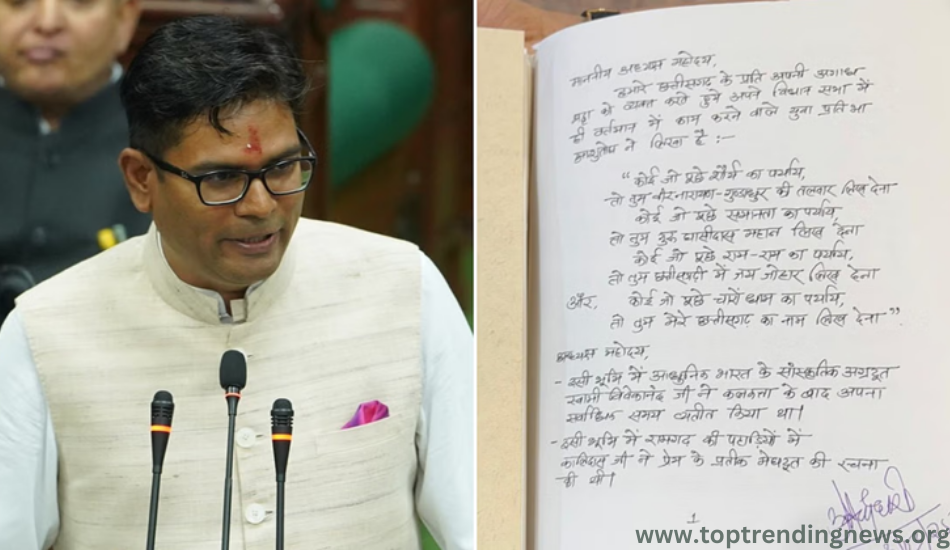 माननीय अध्यक्ष महोदय,
हमारे छत्तीसगढ़ के प्रति अपनी अगाध
श्रद्धा को व्यक्त करते हुये अपने विधान सभा में
ही वर्तमान में काम करने वाले युवा प्रतिभा
ने लिखा है :-
"कोई जो पूछे शौर्य का पर्याय,
तो तुम वीरनारायण-गुण्डाधुर की तलवार लिख देना
कोई जो पूछे समानता का पर्याय,
तो तुम गुरु घासीदास महान लिख देना
कोई जो पूछे राम-राम का पर्याय,
तो तुम छत्तीसगढ़ी में जय जोहार लिख देना
और, कोई जो पूछे चारों धाम का पर्याय,
तो तुम मेरे छत्तीसगढ़ का नाम लिख देना"।
अध्यक्ष महोदय,
- इसी भूमि में आधुनिक भारत के सांस्कृतिक अग्रदूत
स्वामी विवेकानंद जी ने कलकत्ता के बाद अपना
सर्वाधिक समय व्यतीत किया था।
- इसी भूमि में रामगढ़ की पहाड़ियों में
कालिदास जी ने प्रेम के प्रतीक मेघदूत की रचना
की थी।
1
www.toptrendingnews.org